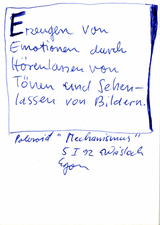 Erzeugen von
Emotionen durch
Hörenlassen von
Tönen und Sehen-
lassen von Bildern.
Polaroid "Mechanismus"
5 I 92
Egon